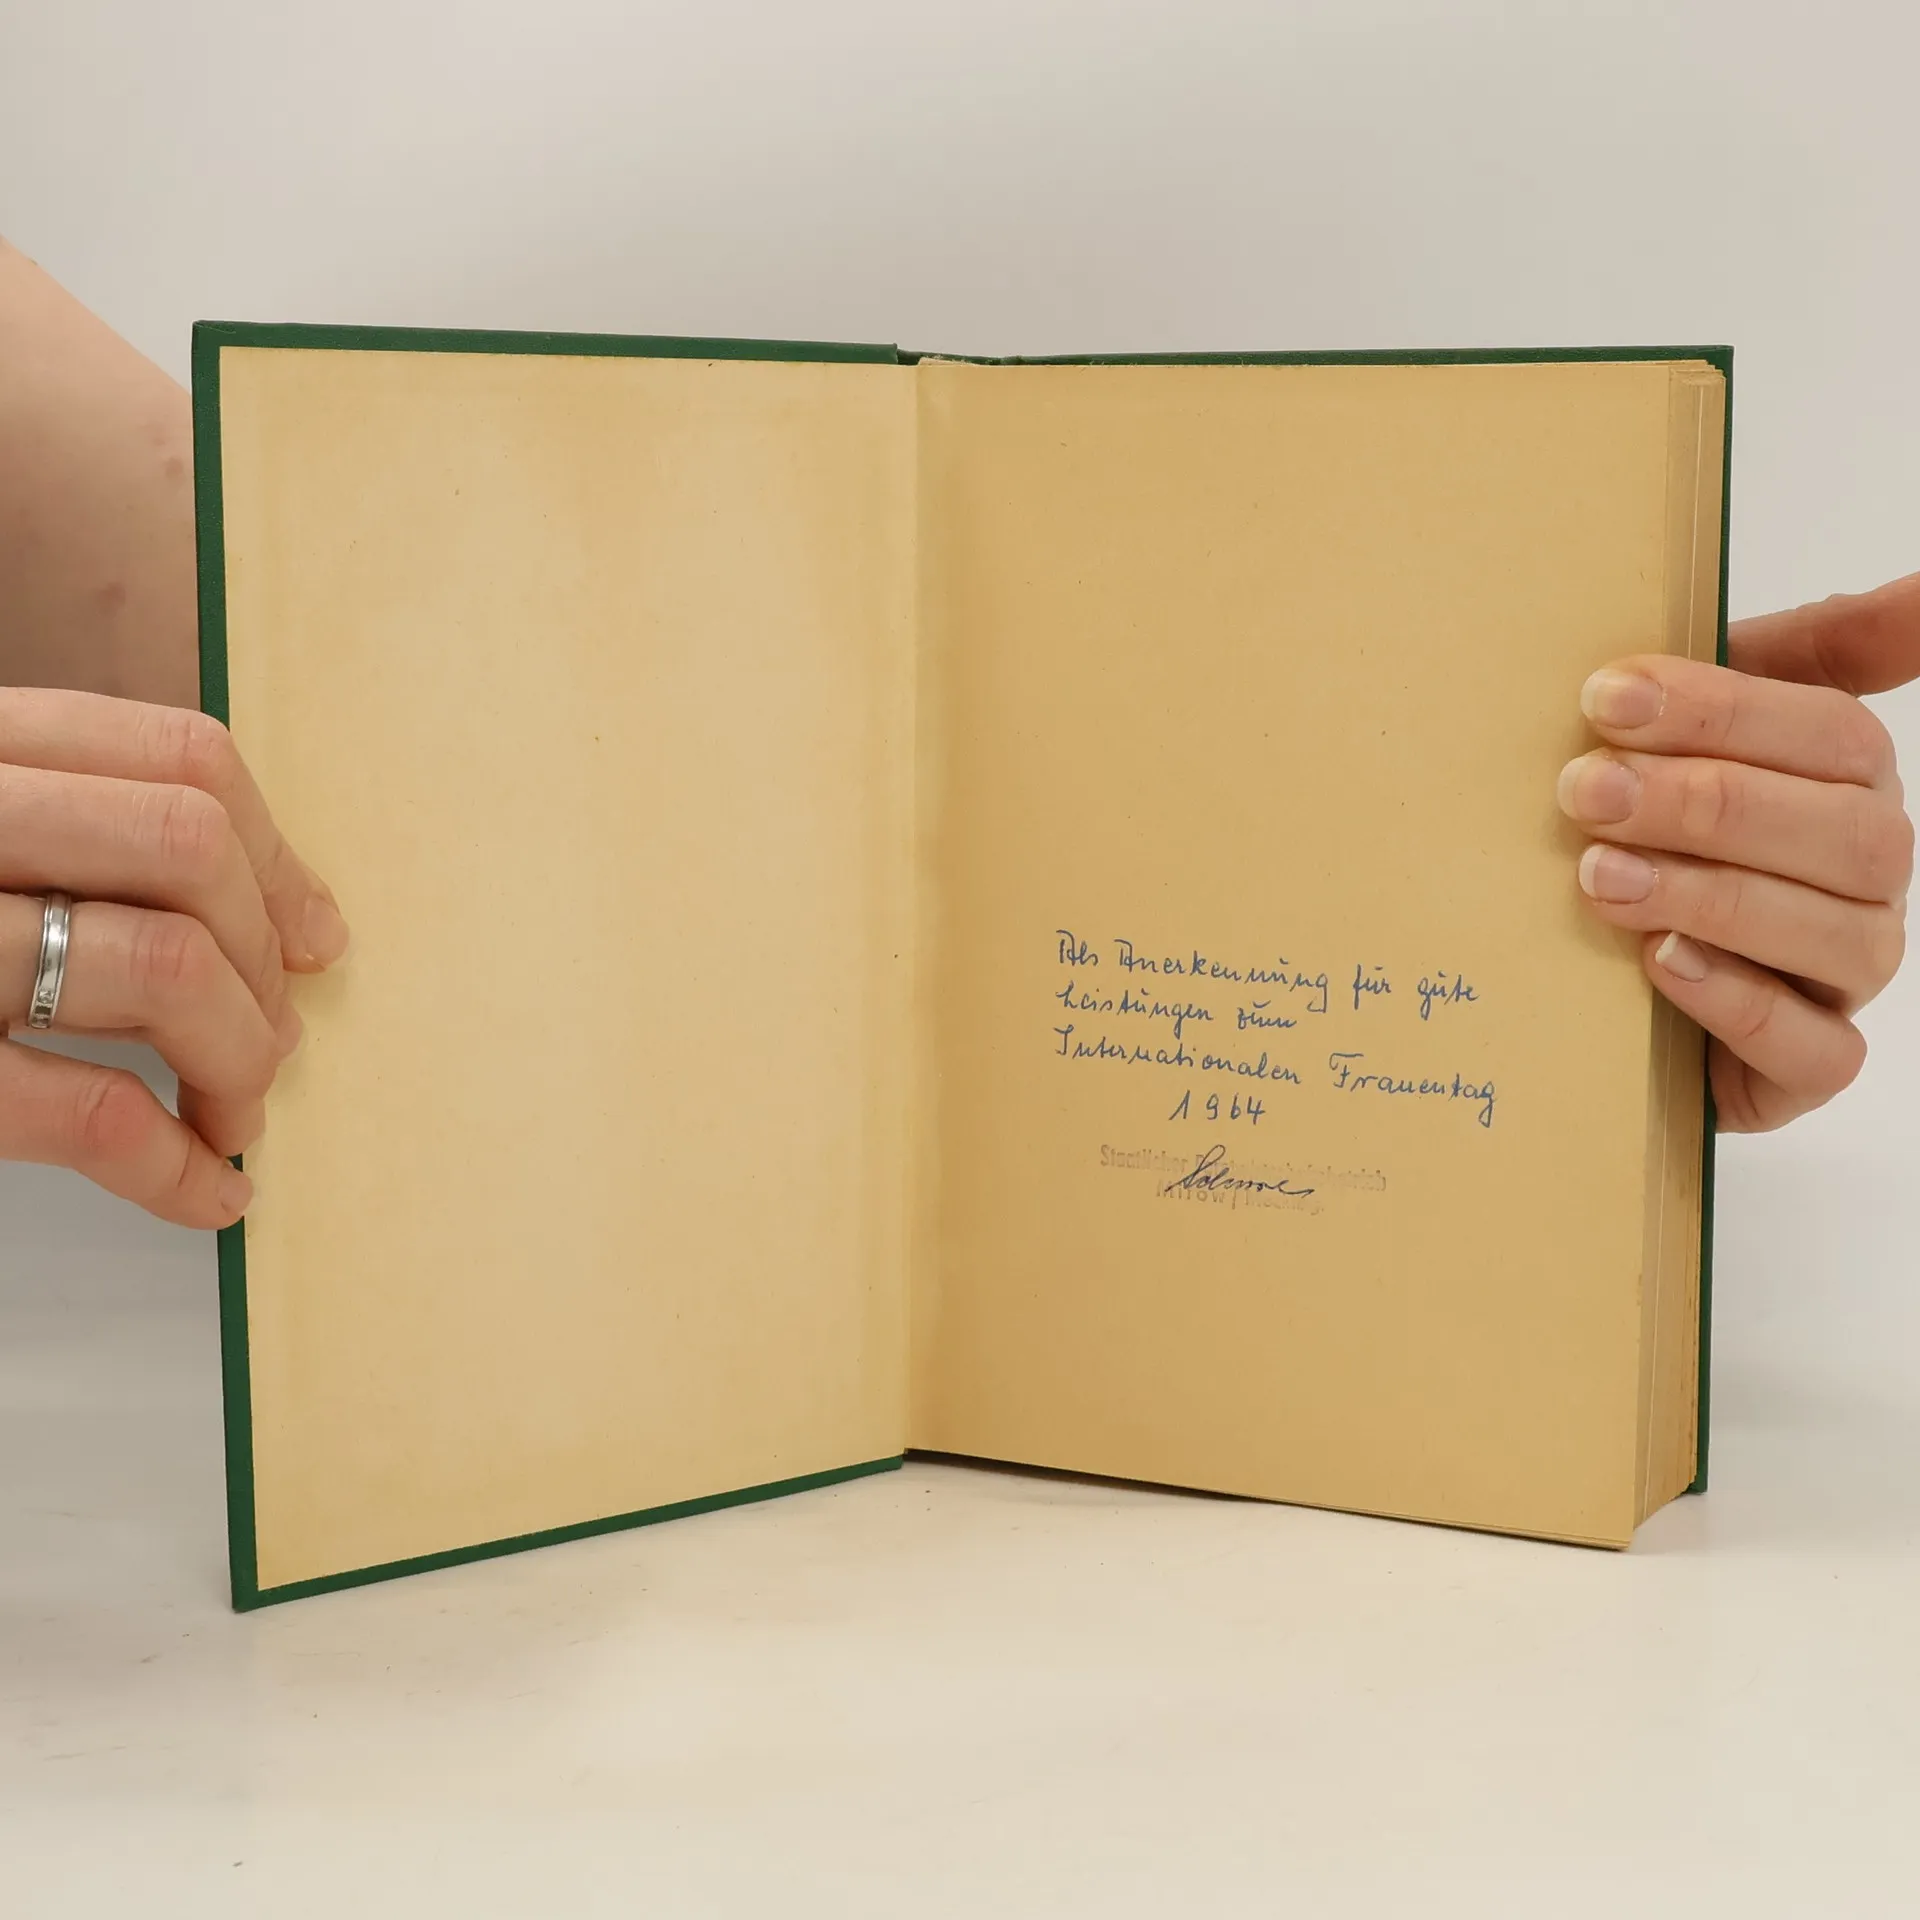 Als Anerkennung für gute
Leistungen zum
Internationalen Frauentag
1964
Staatlicher
Mirow